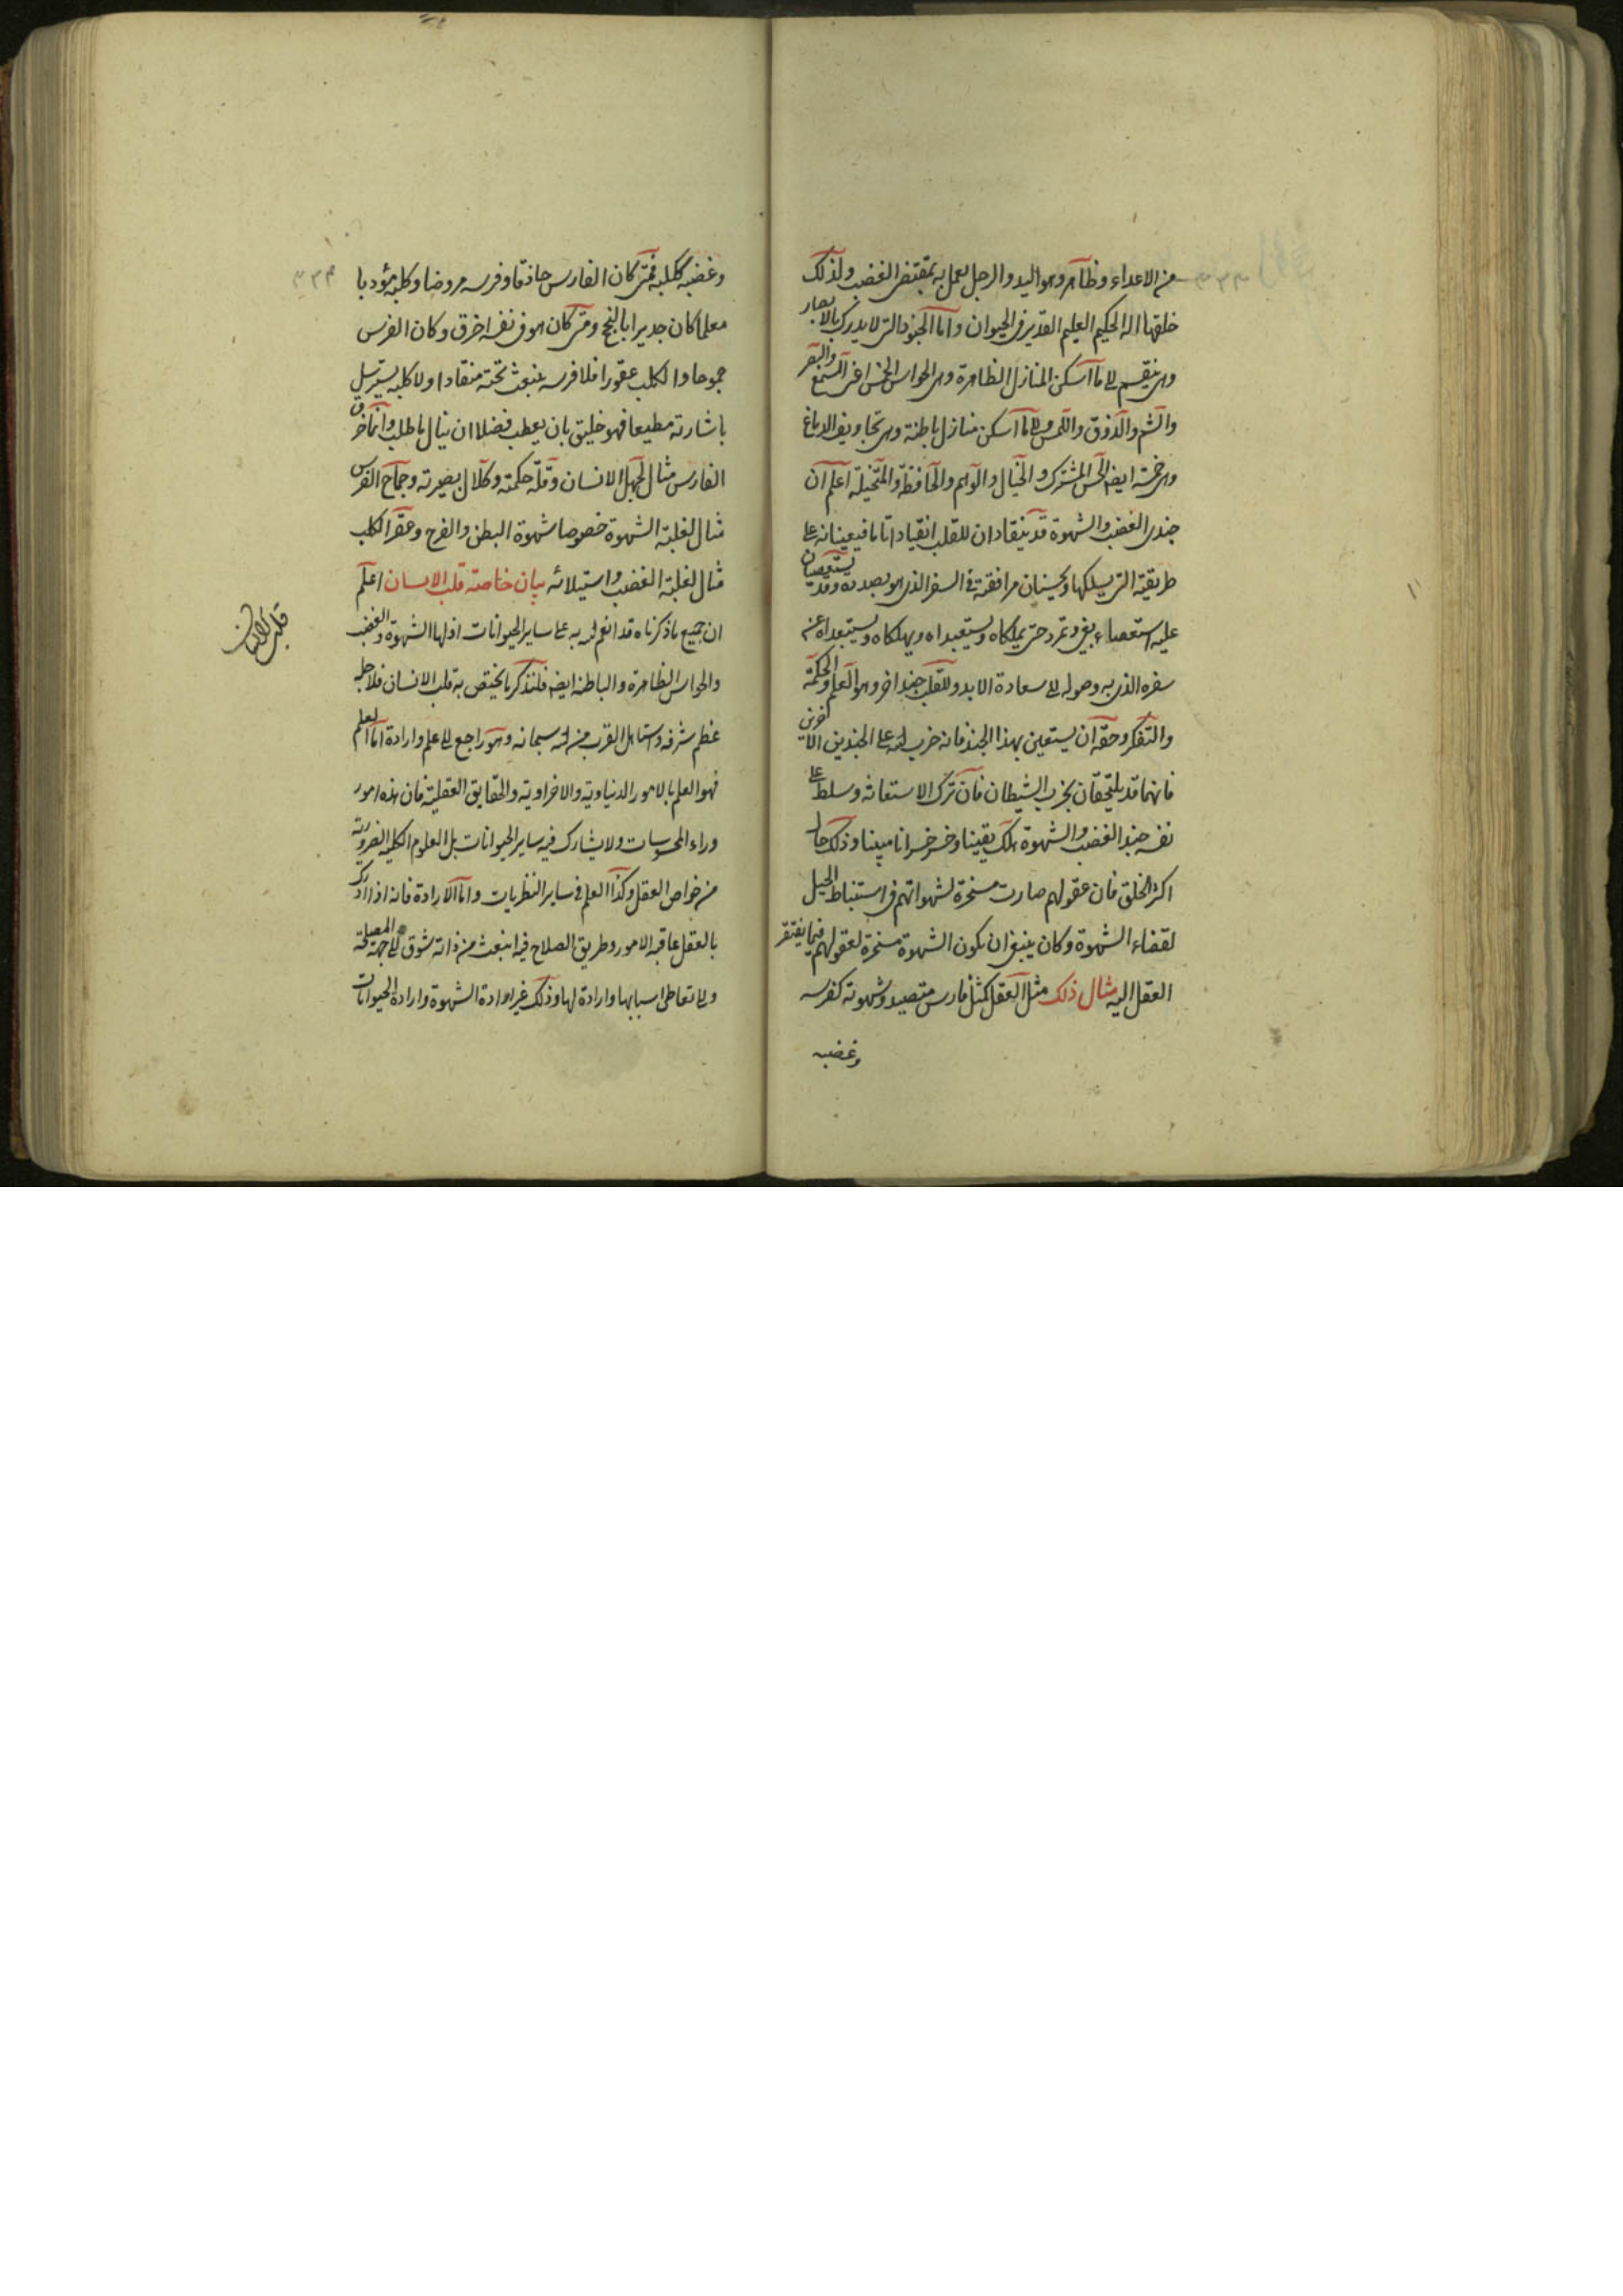 من الاعداء وظاهر وهو اليد والرجل يعمل به بمقتضى الغضب ولذلك
خلقها اله الحكيم العليم القدير فى الحيوان واما الجنود التى لا يدرك بالابصار
وهى ينقسم الى ما اسكن المنازل الظاهرة وهى الحواس الخمس اعنى السمع والبصر
والشم والذوق واللمس والى ما اسكن منازل باطنة وهى تجاويف الدماغ
وهى خمسة ايضا الحس المشترك والخيال والواهم والحافظة والمتخيلة اعلم ان
جندى الغضب والشهوة قد ينقادان للقلب انقيادا تاما فيعينانه على
طريقته التى يسلكها ويحسنان مرافقته فى السفر الذى هو بصدده وقد يستعصيان
عليه استعصاء بغى وتمرد حتى يملكاه ويستعبداه ويهلكاه ويستبعداه عن
سفره الذى به وصوله الى سعادة الابد وللقلب جند اخر وهو العلم والحكمة
والتفكر وحقه ان يستعين بهذا الجند فانه حزب الله على الجندين الاخرين
فانهما قد يلتحقان بحزب الشيطان فان ترك الاستعانة وسلط على
نفسه جند الغضب والشهوة هلك يقينا وخسر خسرانا مبينا وذلك حال
اكثر الخلق فان عقولهم صارت مسخرة لشهواتهم فى استنباط الحيل
لقضاء الشهوة وكان ينبغى ان يكون الشهوة مسخرة لعقولهم فيما يفتقر
العقل اليه مثال ذلك مثل العقل كمثل فارس متصيد وشهوته كفرسه
وغضبه
٣٣٣
وغضبه ككلبه فمتى كان الفارس حاذقا وفرسه مروضا وكلبه مؤدبا
معلما كان جديرا بالنجح ومتى كان هو فى نفسه اخرق وكان الفرس
جموحا والكلب عقورا فلا فرسه ينبعث تحته منقادا ولا كلبه يسترسل
باشارته مطيعا فهو خليق بان يعطب فضلا ان ينال ما طلب وانما خرق
الفارس مثال لجهل الانسان وقلة حكمته وكلال بصيرته وجماح الفرس
مثال لغلبة الشهوة خصوصا شهوة البطن والفرج وعقر الكلب
مثال لغلبة الغضب واستيلائه بيان خاصة قلب الانسان اعلم
ان جميع ما ذكرناه قد انعم الله به على ساير الحيوانات اذ لها الشهوة والغضب
والحواس الظاهرة والباطنة ايضا فلنذكر ما يختص به قلب الانسان فلاجله
عظم شرفه واستاهل القرب من الله سبحانه وهو راجع الى علم وارادة اما العلم
فهو العلم بالامور الدنياوية والاخراوية والحقايق العقلية فان هذه امور
وراء المحسوسات ولا يشارك فيه ساير الحيوانات بل العلوم الكلية الضرورية
من خواص العقل وكذا العلم فى ساير النظريات واما الارادة فانه اذا ادرك
بالعقل عاقبة الامور وطريق الصلاح فيه انبعث من ذاته شوق الى جهة المصلحة
والى تعاطى اسبابها وارادة لها وذلك غير ارادة الشهوة وارادة الحيوانات
قلب الانسان
٣٣٤